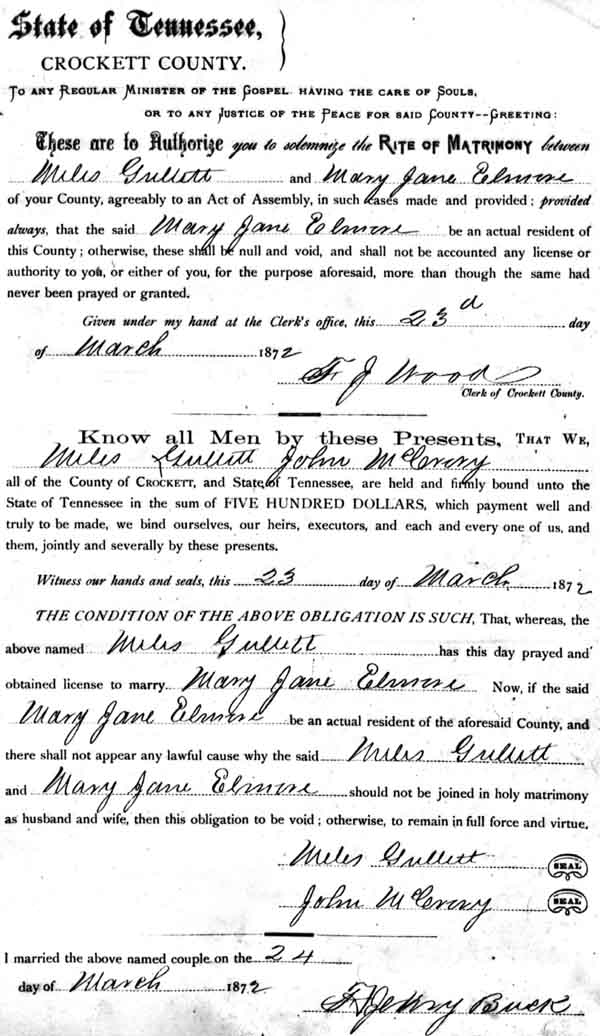 State of Tennessee,
CROCKETT COUNTY.
TO ANY REGULAR MINISTER OF THE GOSPEL HAVING THE CARE OF SOULS,
OR TO ANY JUSTICE OF THE PEACE FOR SAID COUNTY--GREETING:
These are to Authorize you to solemnize the RITE OF MATRIMONY between
Miles Gullett and Mary Jane Elmore
of your County, agreeably to an Act of Assembly, in such cases made and provided; provided
always, that the said Mary Jane Elmore be an actual resident of
this County; otherwise, these shall be null and void, and shall not be accounted any license or
authority to you, or either of you, for the purpose aforesaid, more than though the same had
never been prayed or granted.
Given under my hand at the Clerk's office, this 23d day
of March 1872
F. J. Wood
Clerk of Crockett County.
Know all Men by these Presents, THAT WE,
Miles Gullett John McCrory
all of the County of CROCKETT, and State of Tennessee, are held and firmly bound unto the
State of Tennessee in the sum of FIVE HUNDRED DOLLARS, which payment well and
truly to be made, we bind ourselves, our heirs, executors, and each and every one of us, and
them, jointly and severally by these presents.
Witness our hands and seals, this 23 day of March 1872
THE CONDITION OF THE ABOVE OBLIGATION IS SUCH, That, whereas, the
above named Miles Gullett has this day prayed and
obtained license to marry Mary Jane Elmore Now, if the said
Mary Jane Elmore be an actual resident of the aforesaid County, and
there shall not appear any lawful cause why the said Miles Gullett
and Mary Jane Elmore should not be joined in holy matrimony
as husband and wife, then this obligation to be void; otherwise, to remain in full force and virtue.
Miles Gullett SEAL
John McCrory SEAL
I married the above named couple on the 24
day of March 1872
Henry Buck